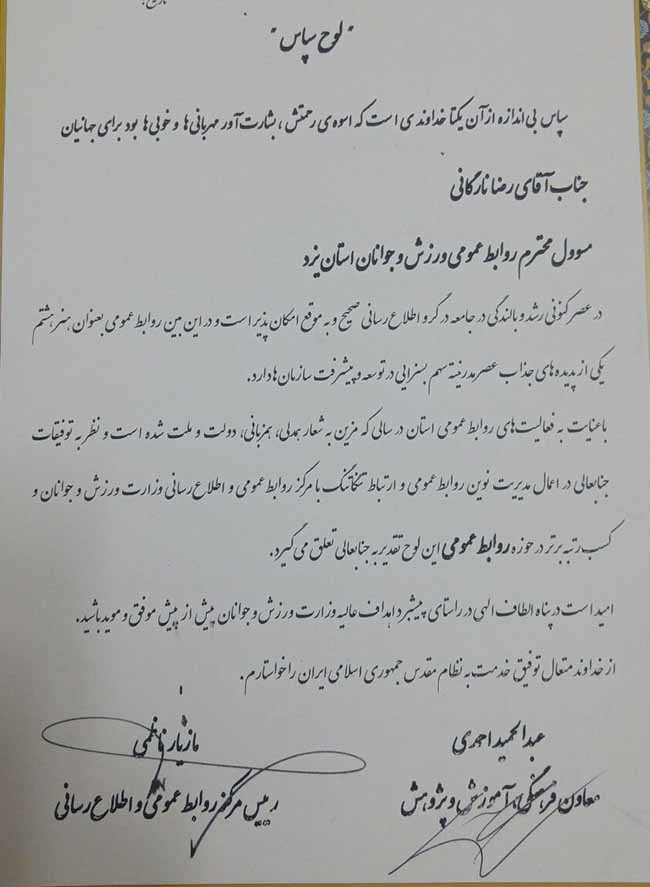 تاریخ:
" لوح سپاس "
سپاس بی اندازه از آن یکتا خداوندی است که اسوه ی رحمتش ، بشارت آور مهربانی ها و خوبی ها بود برای جهانیان
جناب آقای رضا نارگانی
مسوول محترم روابط عمومی ورزش و جوانان استان یزد
در عصر کنونی رشد و بالندگی در جامعه در گرو اطلاع رسانی صحیح و به موقع امکان پذیر است و در این بین روابط عمومی بعنوان هنر هشتم
یکی از پدیده های جذاب عصر مدرنیته سهم بسزایی در توسعه و پیشرفت سازمان ها دارد.
با عنایت به فعالیت های روابط عمومی استان در سالی که مزین به شعار همدلی، همزبانی، دولت و ملت شده است و نظر به توفیقات
جنابعالی در اعمال مدیریت نوین روابط عمومی و ارتباط تنگاتنگ با مرکز روابط عمومی و اطلاع رسانی وزارت ورزش و جوانان و
کسب رتبه برتر در حوزه روابط عمومی این لوح تقدیر به جنابعالی تعلق می گیرد.
امید است در پناه الطاف الهی در راستای پیشبرد اهداف عالیه وزارت ورزش و جوانان بیش از پیش موفق و موید باشید.
از خداوند متعال توفیق خدمت به نظام مقدس جمهوری اسلامی ایران را خواستارم .
عبدالحمید احمدی
معاون فرهنگی، آموزش و پژوهش
مازیار ناظمی
رییس مرکز روابط عمومی و اطلاع رسانی